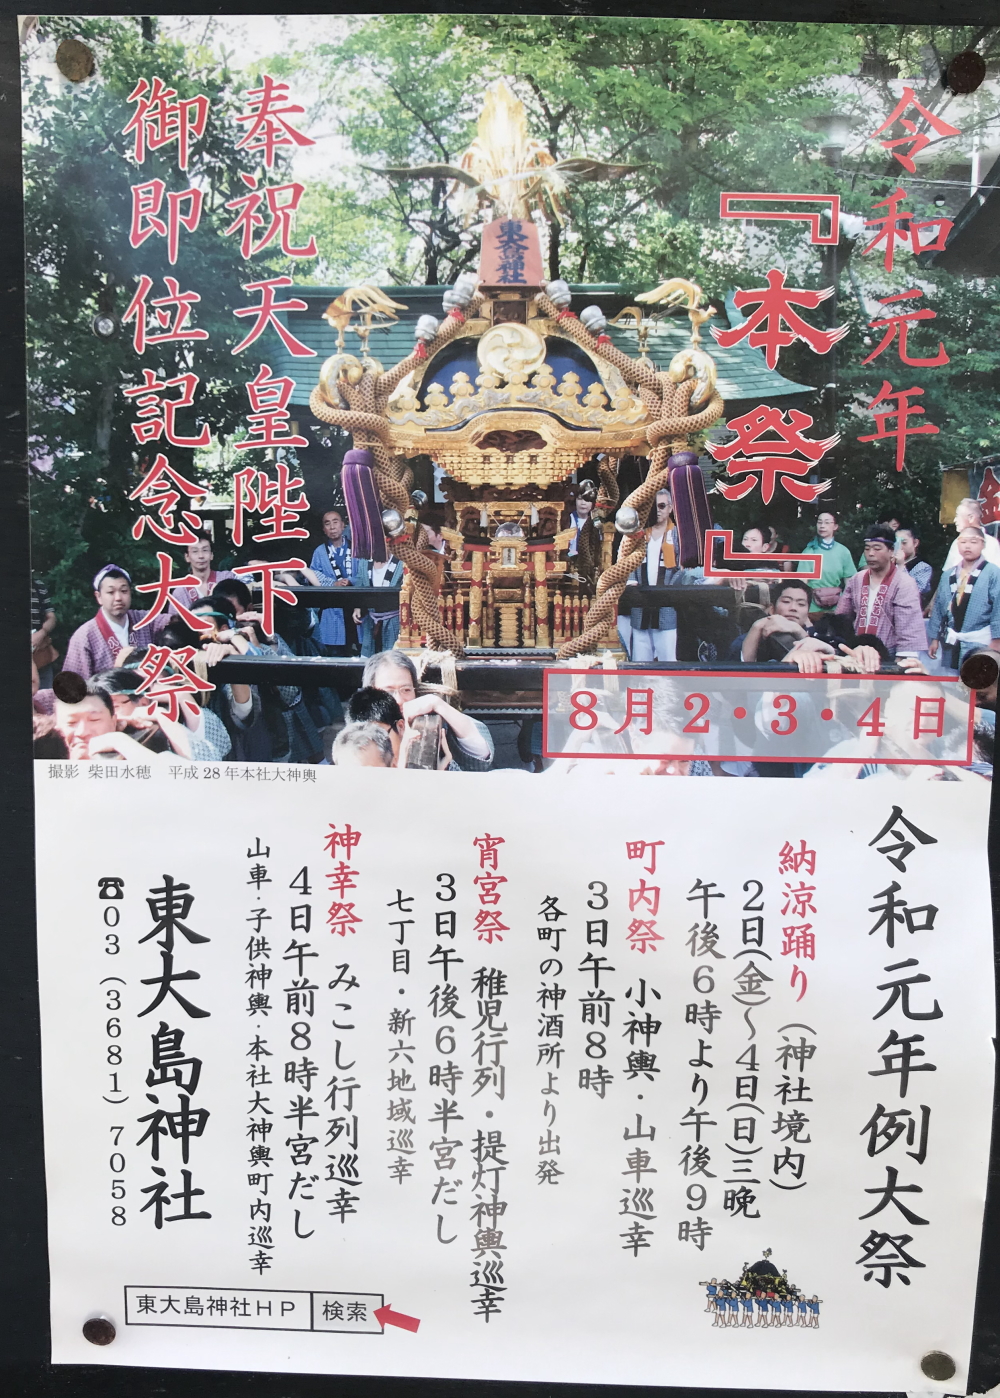 令和元年
『本祭』
奉祝天皇陛下
御即位記念大祭
東大島神社
8月2・3・4日
撮影 柴田水穂 平成28年本社大神輿
令和元年例大祭
納涼踊り(神社境内)
2日(金)～4日(日)三晩
午後6時より午後9時
町内祭 小神輿・山車巡幸
3日午前8時
各町の神酒所より出発
宵宮祭 稚児行列・提灯神輿巡幸
3日午後6時半宮だし
七丁目・新六地域巡幸
神幸祭 みこし行列巡幸
4日午前8時半宮だし
山車・子供神輿・本社大神輿町内巡幸
東大島神社
☎03(3681)7058
東大島神社HP 検索